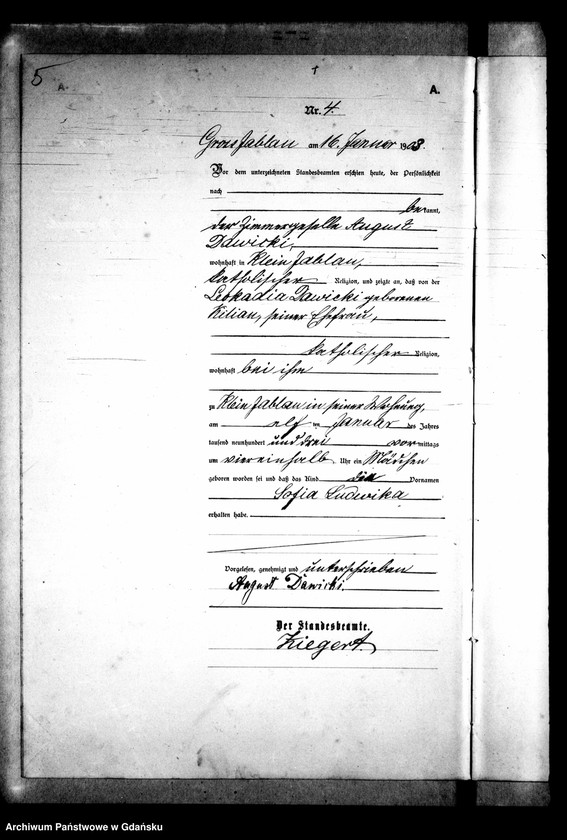 5
A.
Nr. 4.
Gross Jablau am 16. Januar 1903.
Vor dem unterzeichneten Standesbeamten erschien heute, der Persönlichkeit
nach
bekannt,
der Zimmergeselle August
Dawicki,
wohnhaft in Klein Jablau,
katholischer Religion, und zeigte an, daß von der
Leokadia Dawicki geborenen
Kilian, seiner Ehefrau,
katholischer Religion,
wohnhaft bei ihm
zu Klein Jablau in seiner Wohnung,
am elf ten Januar des Jahres
tausend neunhundert und drei vormittags
um vier einhalb Uhr ein Mädchen
geboren worden sei und daß das Kind die Vornamen
Sofia Ludwika
erhalten habe.
Vorgelesen, genehmigt und unterschrieben
August Dawicki
Der Standesbeamte.
Ziegert
Archiwum Państwowe w Gdańsku